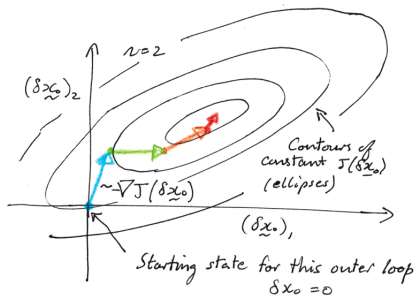 n=2
(δx₀)₂
Contours of
constant J(δx₀)
(ellipses)
~∇J(δx₀)
(δx₀)₁
Starting state for this outer loop
δx₀ = 0